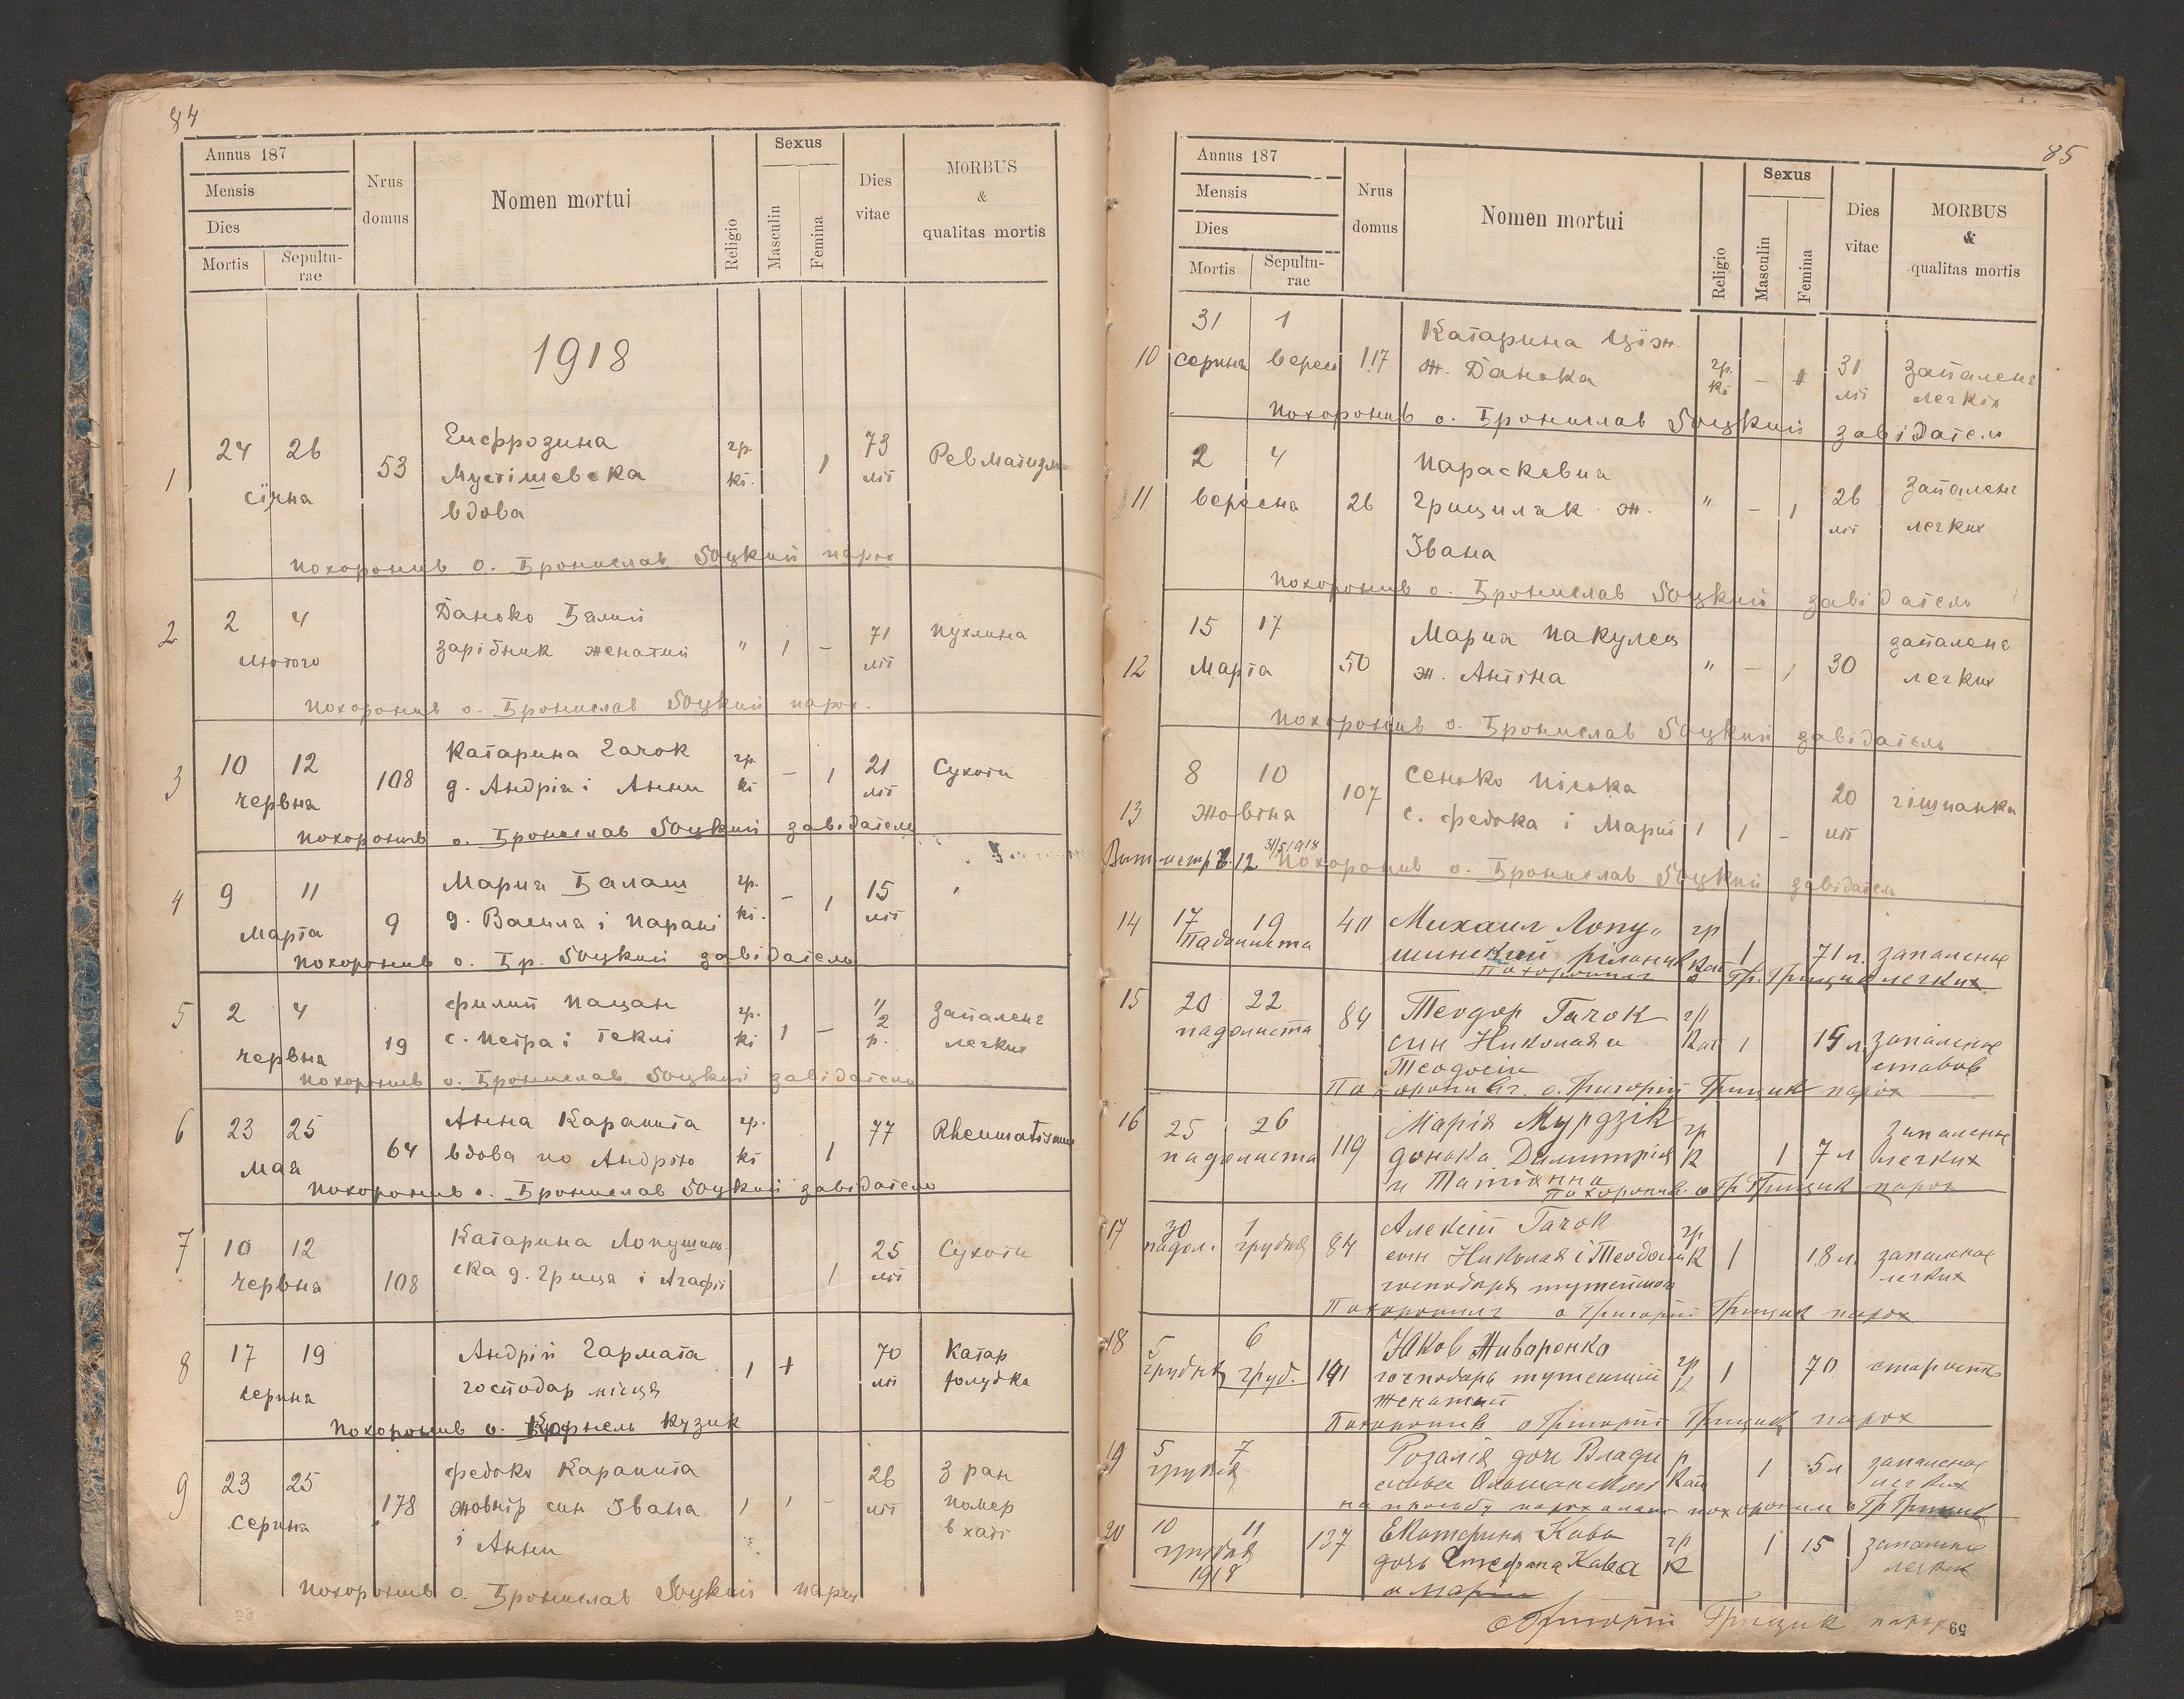 84
Annus 187
Mensis
Dies
Mortis
Sepulturae
Nrus domus
Nomen mortui
Religio
Sexus
Masculin
Femina
Dies vitae
MORBUS & qualitas mortis
1918
1 24 26 53 Евфрозина гр. 1 73
січня кт. літ
вдова
Похоронив о. Бронислав парох
2 2 4 Данько Білий 71 пухлина
лютого зарібник женатий " 1 – літ
Похоронив о. Бронислав парох.
3 10 12 108 Катарина Гачок гр. – 1 21 Сухоти
червня д. Андрія і Анни кт літ
Похоронив о. Бронислав завідатель
4 9 11 Мария Балаш гр. – 1 15 "
Марта 9 д. Василя і Парані кт. літ
Похоронив о. Бр. завідатель
5 2 4 филип Пацан гр. 1 – 1/2 Запаленє
червня 19 с. Петра і Теклі кт р. легких
Похоронив о. Бронислав завідатель
6 23 25 64 Анна Карапита гр. 1 77 Rheumatismus
Мая вдова по Андрію кт
Похоронив о. Бронислав завідатель
7 10 12 108 Катарина Лопушин- 1 25 Сухоти
червня ска д. Гриця і Агафії літ
8 17 19 Андрій Гармата 1 + 70 Катар
серпня господар місця літ жолудка
Похоронив о. Корнель Кузик
9 23 25 178 федько Карапита 1 1 – 26 З ран
серпня жовнір син Івана літ помер
і Анни в хаті
Похоронив о. Бронислав парох
85
Annus 187
Mensis
Dies
Mortis
Sepulturae
Nrus domus
Nomen mortui
Religio
Sexus
Masculin
Femina
Dies vitae
MORBUS & qualitas mortis
10 31 1 117 Катарина гр. – 1 31 запаленє
серпня верес ж. Данька кт літ легких
Похоронив о. Бронислав завідатель
11 2 4 26 Параскевия " – 1 26 Запаленє
вересня Грициляк ж. літ легких
Івана
Похоронив о. Бронислав завідатель
12 15 17 50 Мария Пакулец " – 1 30 запаленє
Марта ж. Антіна легких
Похоронив о. Бронислав завідатель
13 8 10 107 Сенько Пілька 1 1 – 20 гішпанка
жовтня с. федька і Марії літ
31/5 1918
12 Похоронив о. Бронислав завідатель
14 17 19 40 Михаил Лопу- гр 1 71 л. запаление
Падолиста шинский рільник Кат легких
Похоронил Гр. Грицик
15 20 22 84 Теодор Гачок гр 1 запаление
падолиста син Николая и Кат ставов
Теодосіи
Похоронив о. Григорій Грицик парох
16 25 26 119 Марія Мурдзік гр 1 7 л запаление
падолиста донька Димитрія К легких
и Татіянна
Похоронив о Гр Грицик парох
17 30 1 84 Алексій Гачок гр 1 18 л. запаление
падол. грудня син Николая і Теодосіи К легких
господаря тутейшого
Похоронил о Григорій Грицик парох
18 5 6 Яков Живаронко гр 1 70 старость
грудня груд. господарь тутейший К
женатый
Похоронив о Григорій Грицик парох
19 5 7 Розалія доч Влади р 1 5 л запаление
грудня слава Кат легких
на просьбу похоронил о Гр Грицик
20 10 11 137 Екатерина Кава гр 1 15 запаление
грудня дочь Стефана Кава К легких
1918 и Маріи
Григорій Грицик парох
59